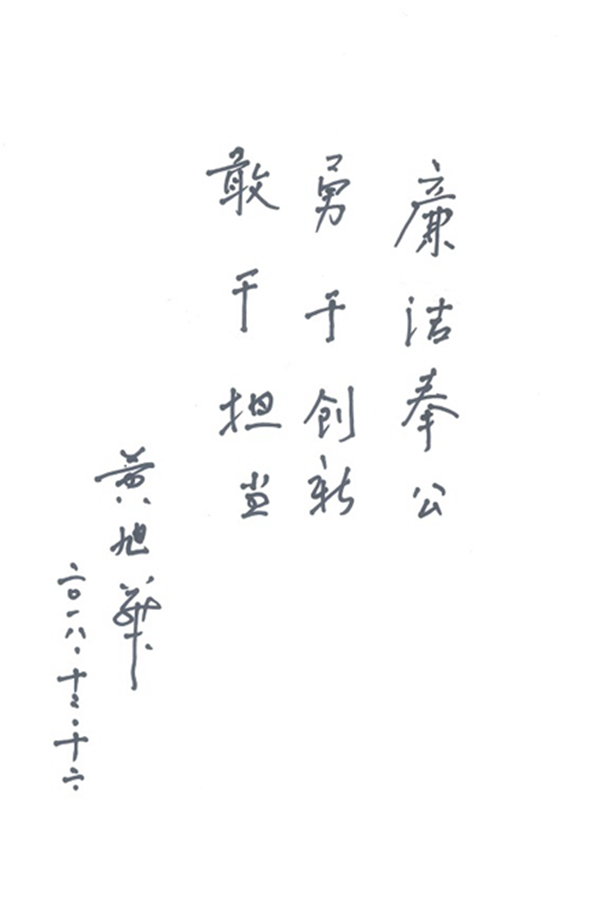 廉洁奉公
勇于创新
敢于担当
黄旭华
二〇一八·十二·十六